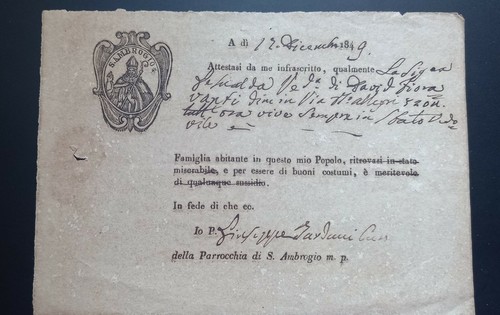 S. AMBROGIO
A dì 12. Dicembre 1849.
Attestasi da me infrascritto, qualmente La Sig.ra
Ved.a di David Fiora
vanti in Via
ora vive sempre in stato Vedo
vile
Famiglia abitante in questo mio Popolo, ritrovasi in stato
miserabile, e per essere di buoni costumi, è meritevole
di qualunque sussidio.
In fede di che ec.
Io P. Giuseppe
della Parrocchia di S. Ambrogio m. p.